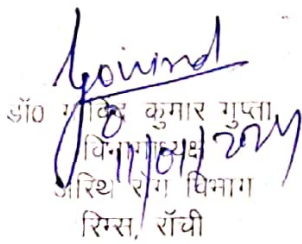 Govind
डॉ० गोविंद कुमार गुप्ता
विभागाध्यक्ष
अस्थि रोग विभाग
रिम्स, राँची